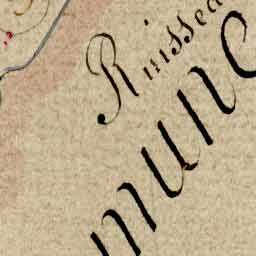 Ruissea
mune